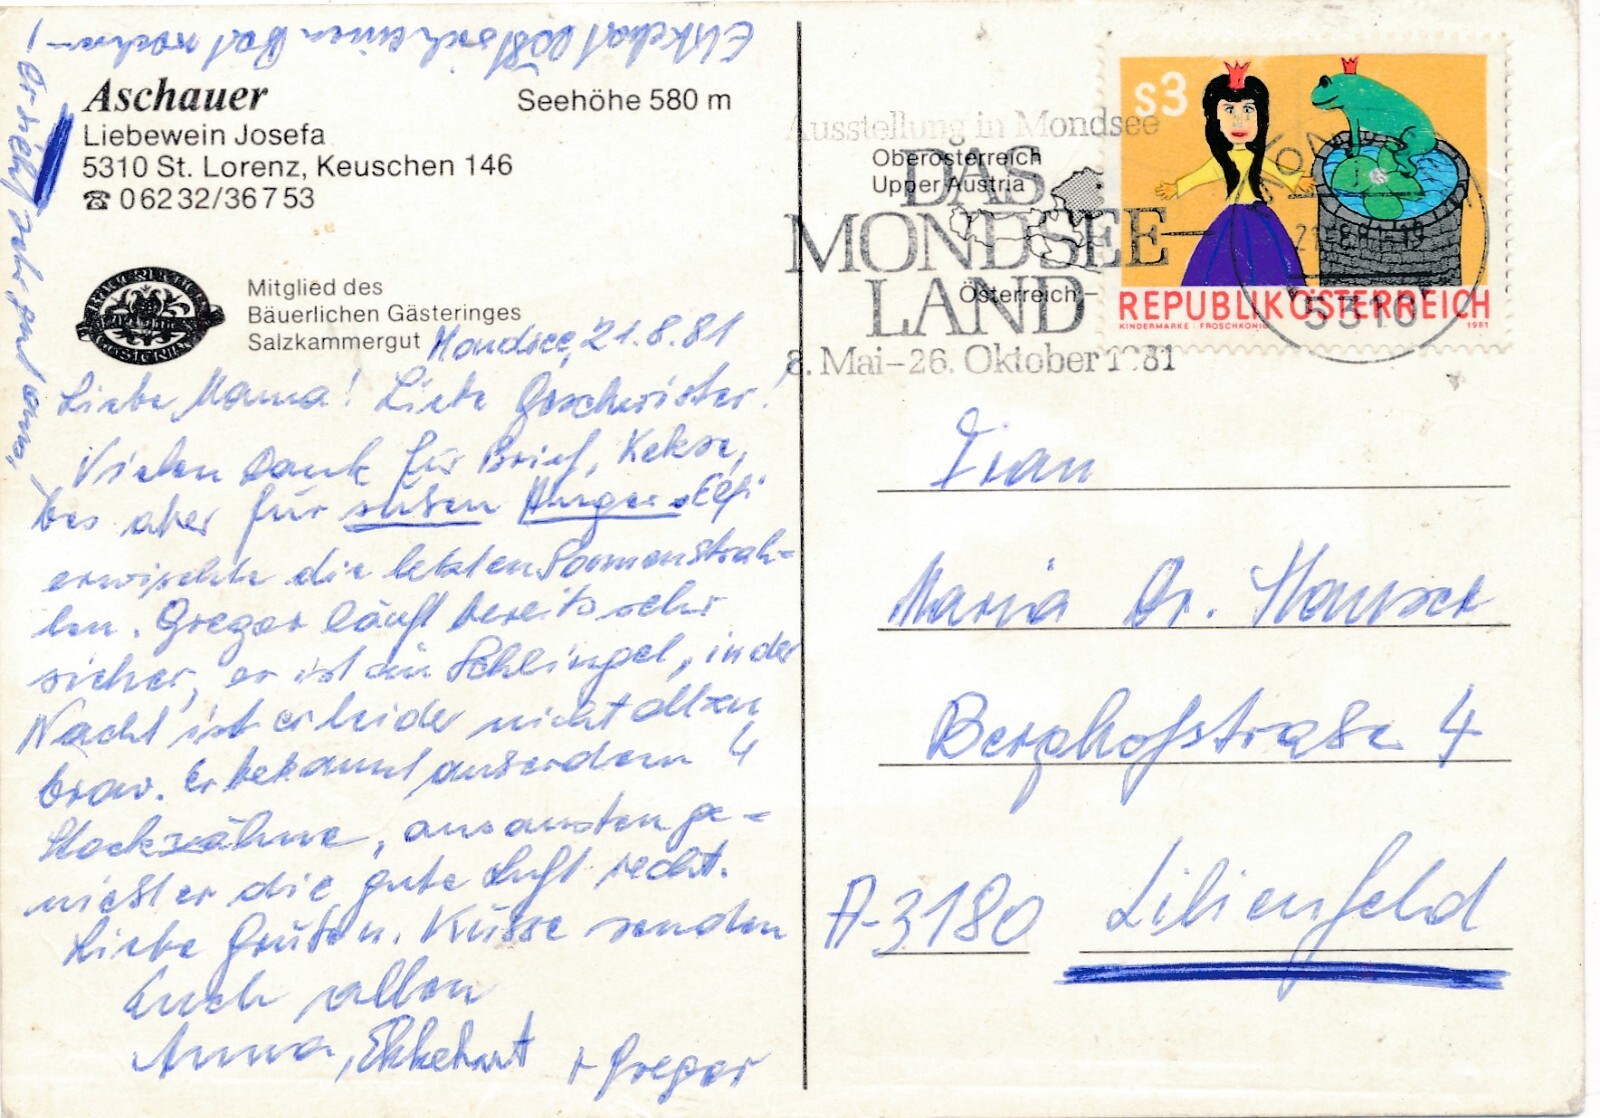 Aschauer
Seehöhe 580 m
Liebewein Josefa
5310 St. Lorenz, Keuschen 146
☎ 06232/36753
Mitglied des
Bäuerlichen Gästeringes
Salzkammergut
Mondsee, 21.8.81
Liebe Mama! Liebe Geschwister!
Vielen Dank für Brief, Kekse,
bes aber für süsen
erwischte die letzten Sonnenstrah=
len. Gregor läuft bereits sehr
sicher, er ist ein Schlingel, in der
Nacht ist er leider nicht allzu
brav. Er bekommt auserdem 4
Stockzähne, ansonsten ge=
nießt er die gute Luft recht.
Liebe Grüße u. Küsse senden
Euch allen
Anna, Ekkehart + Gregor
Ekkehart läßt sich einen Bart wachsen
er sieht sehr gut aus,
Ausstellung in Mondsee
DAS
MONDSEE
LAND
8. Mai–26. Oktober 1981
Oberösterreich
Upper Austria
Österreich
S3
REPUBLIK ÖSTERREICH
KINDERMARKE · FROSCHKÖNIG 1981
5310
Frau
Maria Dr.
Berghofstraße 4
A-3180 Lilienfeld